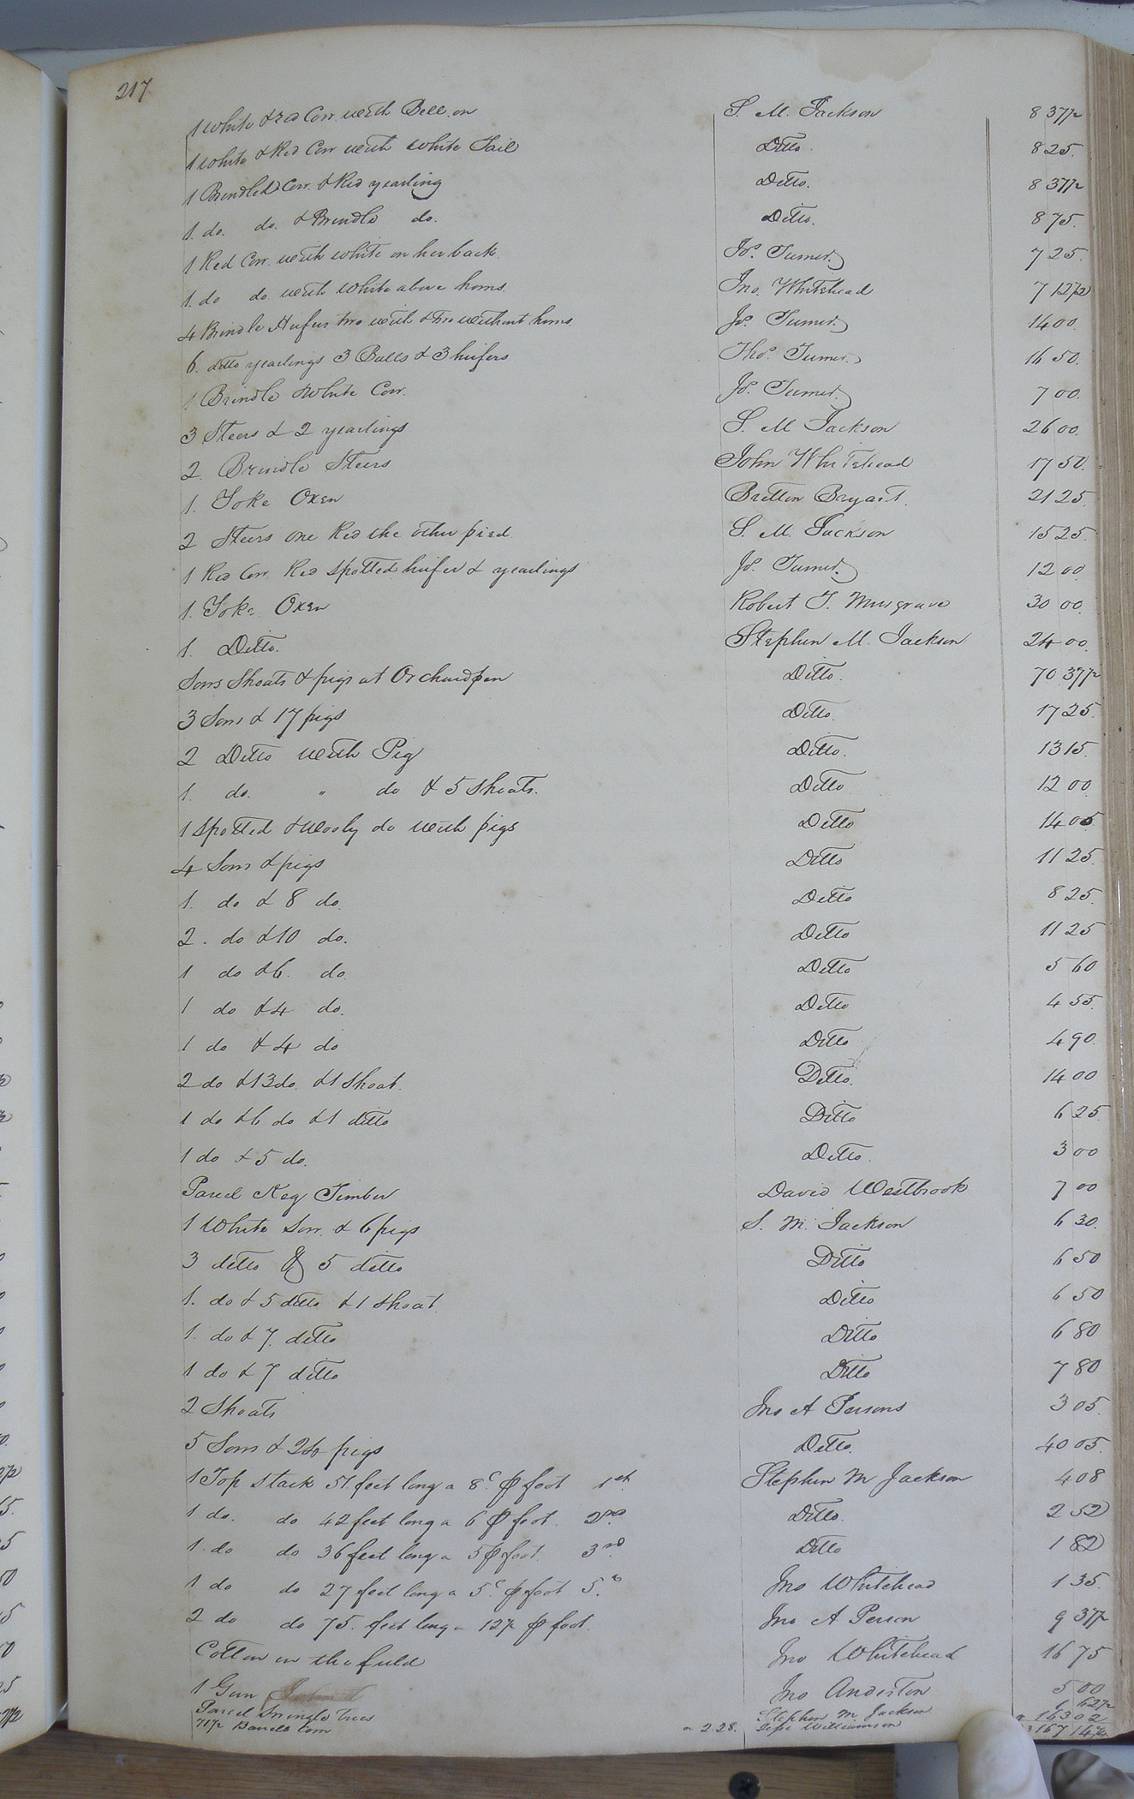 217
1 White & red Cow with Bell on S. M. Jackson 8 37½
1 White & Red Cow with white Tail Ditto. 8 25.
1 Brindled Cow & Red yearling Ditto. 8 37½
1. do. do. & Brindle do. Ditto. 8 75.
1 Red Cow with white on her back. Js. Turner. 7 25.
1. do do with White above horns. Jno. Whitehead 7 12½
4 Brindle Heifers two with & two without horns Js. Turner. 14 00.
6. ditto yearlings 3 Bulls & 3 heifers Thos. Turner. 16 50.
1 Brindle White Cow. Js. Turner. 7 00.
3 Steers & 2 yearlings S. M Jackson 26 00.
2. Brindle Steers John Whitehead 17 50.
1. Yoke Oxen Britton Bryant. 21 25.
2 Steers one Red the other pied S. M. Jackson 15 25.
1 Red Cow Red Spotted heifer & yearlings Js. Turner. 12 00
1. Yoke Oxen Robert T. Musgrave 30 00.
1. Ditto. Stephen M. Jackson 24 00.
Sows Shoats & pigs at Orchard pen Ditto. 70 37½
3 Sows & 17 pigs Ditto. 17 25.
2 Ditto with Pig Ditto. 13 15.
1. do. " do & 5 Shoats. Ditto 12 00.
1 Spotted & Wooly do with pigs Ditto 14 05
4 Sows & pigs Ditto 11 25.
1. do & 8 do. Ditto 8 25.
2. do & 10 do. Ditto 11 25
1 do & 6. do. Ditto 5 60
1 do & 4 do. Ditto 4 55.
1 do & 4 do Ditto 4 90.
2 do & 13 do. & 1 Shoat. Ditto. 14 00
1 do & 6 do & 1 ditto Ditto 6 25
1 do & 5 do. Ditto. 3 00
Parcel Keg Timber David Westbrook 7 00
1 White Sow & 6 pigs S. M. Jackson 6 30.
3 ditto & 5 ditto Ditto 6 50
1. do & 5 ditto & 1 Shoat. Ditto 6 50
1. do & 7. ditto Ditto 6 80
1 do & 7 ditto Ditto 7 80
2 Shoats Jno A Persons 3 05.
5 Sows & 24 pigs Ditto. 40 05.
1 Top Stack 51 feet long a 8c ℔ foot 1st Stephen M Jackson 4 08
1 do. do 42 feet long a 6 ℔ foot. 2nd Ditto. 2 52
1. do do 36 feet long a 5 ℔ foot. 3rd Ditto 1 82
1. do do 27 feet long a 5c ℔ foot 5. Jno Whitehead 1 35.
2 do do 75. feet long a 12½ ℔ foot. Jno A Person 9 37½
Cotton in the field Jno Whitehead 16 75
1 Gun Jno Anderton 5 00
Parcel Swingle trees Stephen M. Jackson 62½
71½ Barrels Corn a 2.28. Williamson 163 02